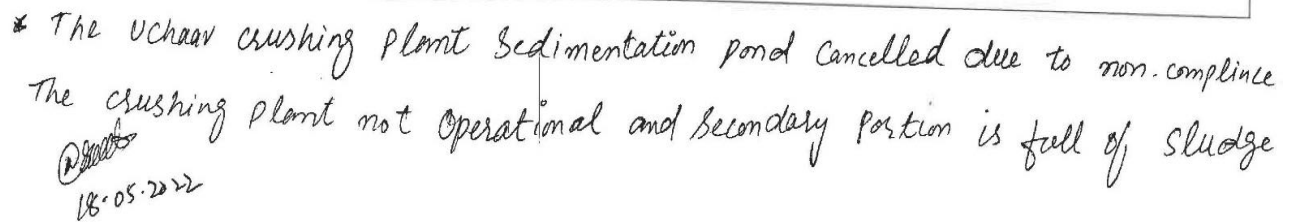 * The Uchaav crushing plant Sedimentation pond Cancelled due to non-complince
The crushing plant not operational and Secondary Portion is full of Sludge
18.05.2022